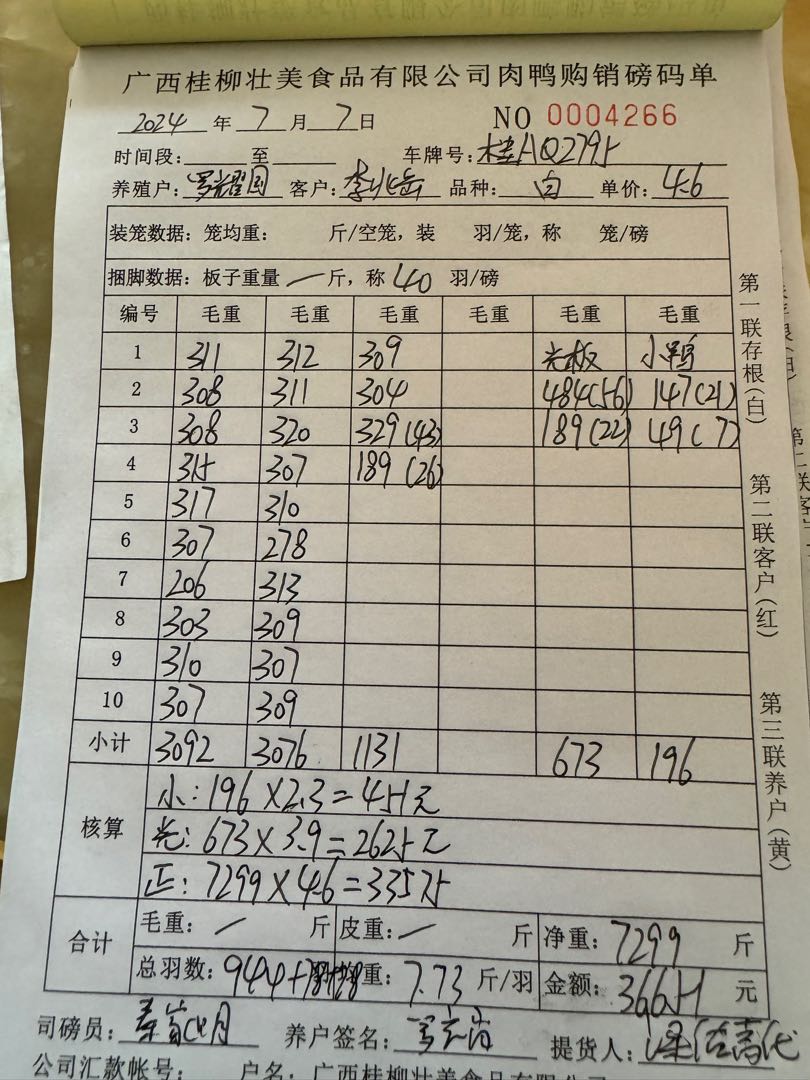 广西桂柳壮美食品有限公司肉鸭购销磅码单
2024 年 7 月 7 日 NO 0004266
时间段: 至 车牌号: 桂AQ2795
养殖户: 罗耀国 客户: 李 岳 品种: 白 单价: 4.6
装笼数据: 笼均重: 斤/空笼, 装 羽/笼, 称 笼/磅
捆脚数据: 板子重量 一 斤, 称 40 羽/磅
编号 毛重 毛重 毛重 毛重 毛重 毛重
1 311 312 309 光板 小鸭
2 308 311 304 484(56) 147(21)
3 308 320 329(43) 189(22) 49(7)
4 315 307 189(26)
5 317 310
6 307 278
7 206 313
8 303 309
9 310 307
10 307 309
小计 3092 3076 1131 673 196
核算
小: 196×2.3=451元
光: 673×3.9=2625元
正: 7299×4.6=33575
合计
毛重: 一 斤 皮重: 一 斤 净重: 7299 斤
总羽数: 944+78+28 均重: 7.73 斤/羽 金额: 36651 元
司磅员: 养户签名: 提货人:
公司汇款帐号: 户名: 广西桂柳壮美食品有限公司
第一联存根(白)
第二联客户(红)
第三联养户(黄)